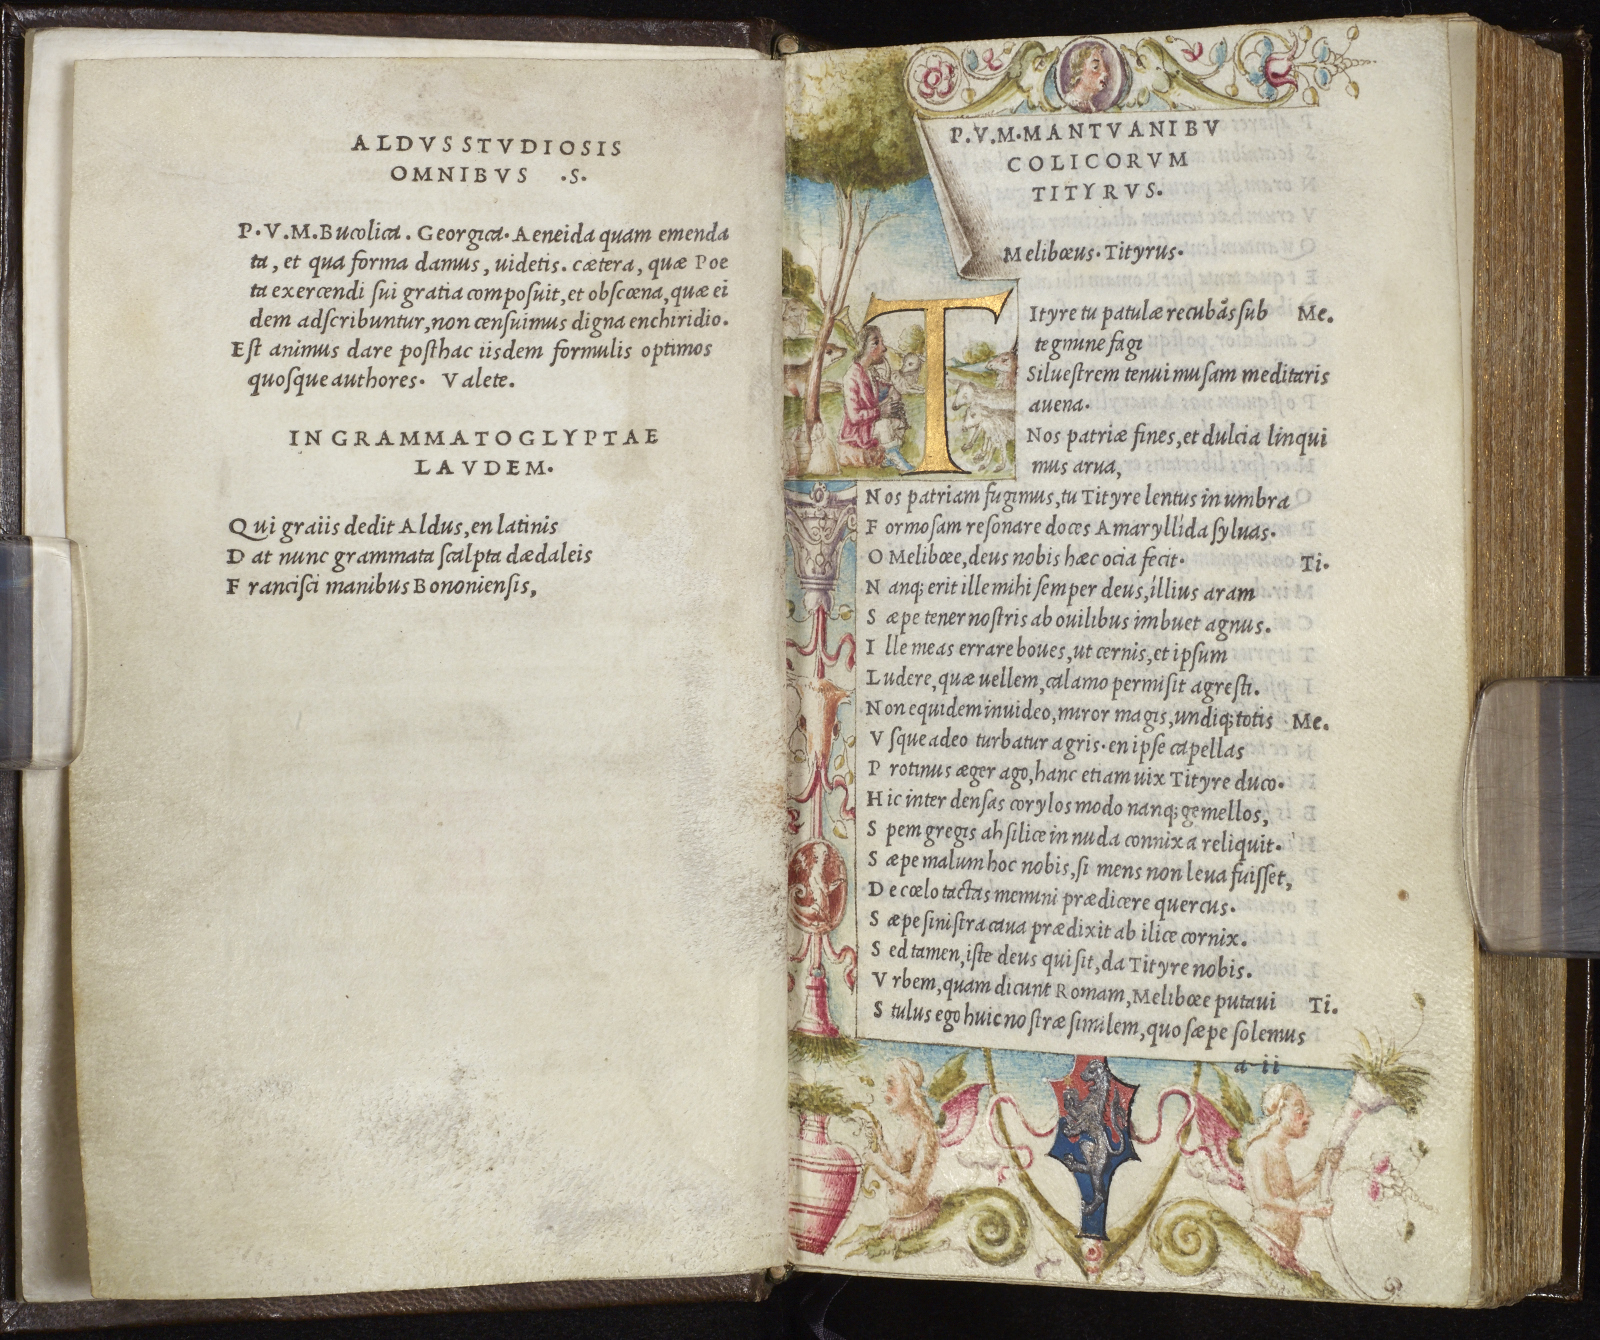 ALDVS STVDIOSIS
OMNIBVS .S.
P.V.M. Bucolica. Georgica. Aeneida quam emenda
ta, et qua forma damus, uidetis. cætera, quæ Poe
ta exercendi ſui gratia compoſuit, et obſcœna, quæ ei
dem adſcribuntur, non cenſuimus digna enchiridio.
Eſt animus dare poſthac iisdem formulis optimos
quoſque authores. Valete.
IN GRAMMATOGLYPTAE
LAVDEM.
Qui graiis dedit Aldus, en latinis
Dat nunc grammata ſcalpta dædaleis
Franciſci manibus Bononienſis,
P.V.M.MANTVANI BV
COLICORVM
TITYRVS.
Melibœus. Tityrus.
Tityre tu patulæ recubãs ſub Me.
tegmine fagi
Silueſtrem tenui muſam meditaris
auena.
Nos patriæ fines, et dulcia linqui
mus arua,
Nos patriam fugimus, tu Tityre lentus in umbra
Formoſam reſonare doces Amaryllida ſyluas.
O Melibœe, deus nobis hæc ocia fecit. Ti.
Nanq; erit ille mihi ſemper deus, illius aram
Sæpe tener noſtris ab ouilibus imbuet agnus.
Ille meas errare boues, ut cernis, et ipſum
Ludere, quæ uellem, calamo permiſit agreſti.
Non equidem inuideo, miror magis, undiq; totis Me.
Vſque adeo turbatur agris. en ipſe capellas
Protinus æger ago, hanc etiam uix Tityre duco.
Hic inter denſas corylos modo nanq; gemellos,
Spem gregis ah ſilice in nuda connixa reliquit.
Sæpe malum hoc nobis, ſi mens non leua fuiſſet,
De cœlo tactas memini prædicere quercus.
Sæpe ſiniſtra caua prædixit ab ilice cornix.
Sed tamen, iſte deus qui ſit, da Tityre nobis.
Vrbem, quam dicunt Romam, Melibœe putaui Ti.
Stulus ego huic noſtræ ſimilem, quo ſæpe ſolemus
a ii